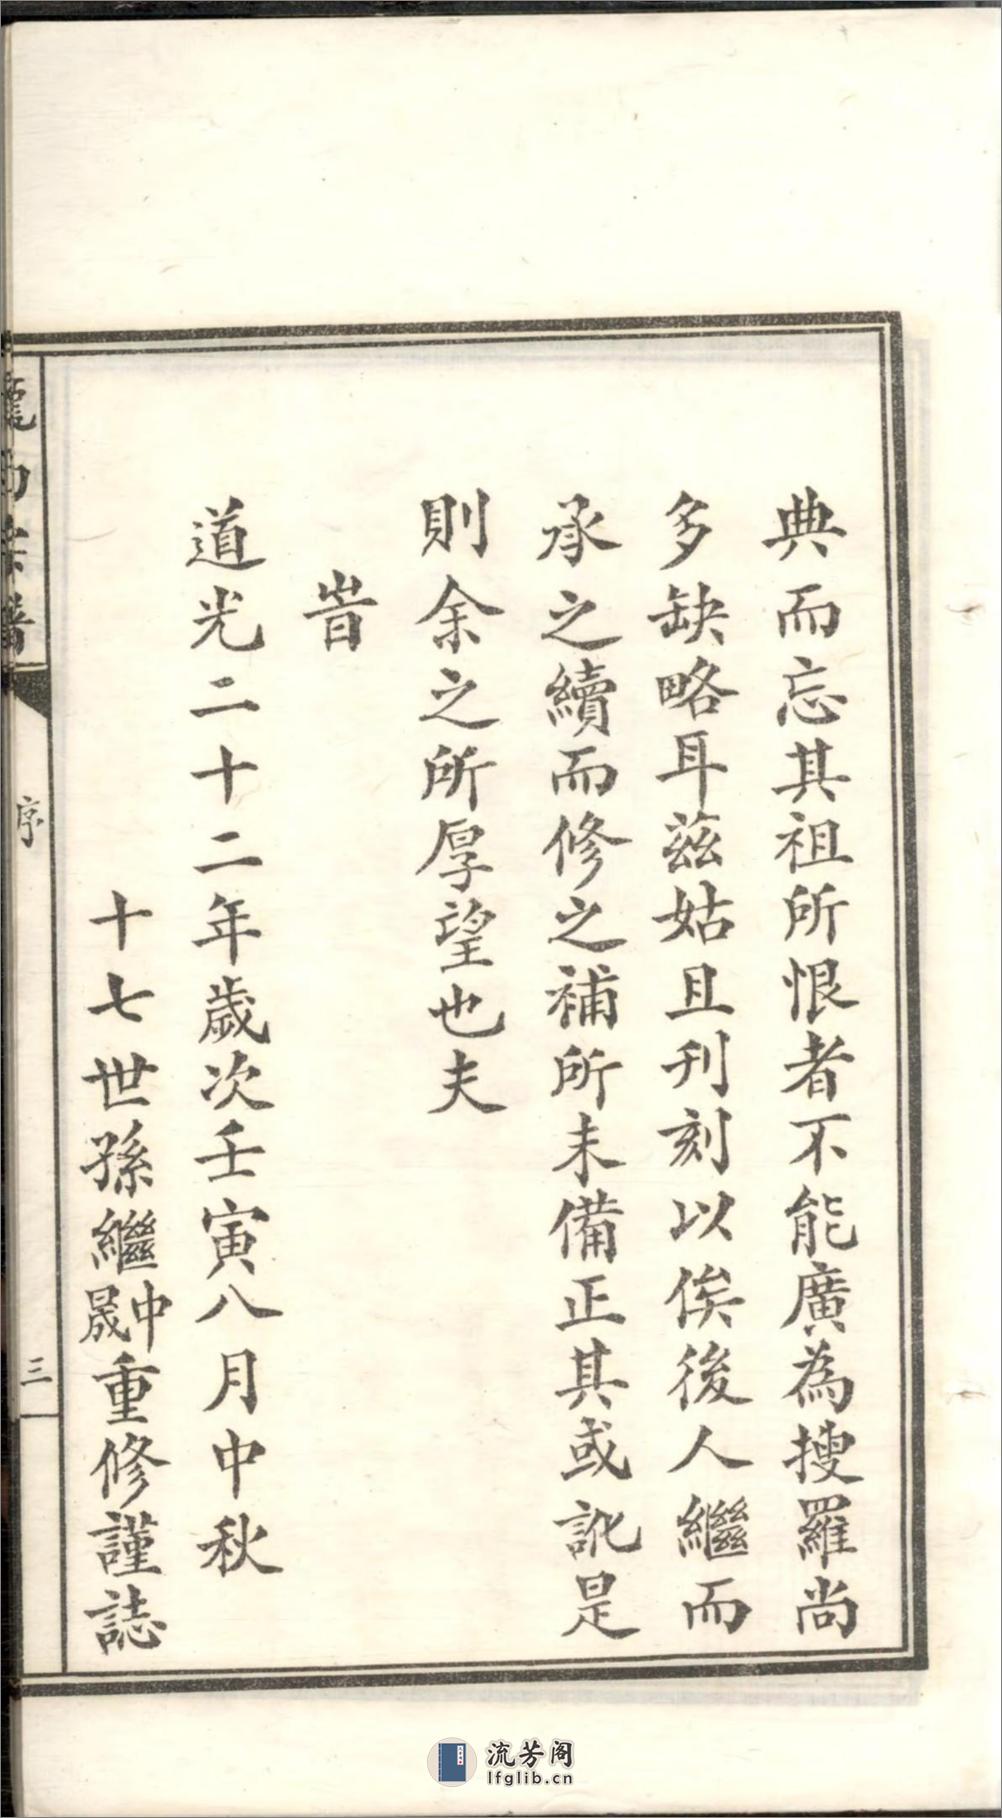 典而忘其祖所恨者不能廣為搜羅尚
多缺略耳茲姑且刊刻以俟後人繼而
承之續而修之補所未備正其或訛是
則余之所厚望也夫
旹
道光二十二年歲次壬寅八月中秋
十七世孫繼中晟重修謹誌
宗譜
序
三
流芳阁
lfglib.cn